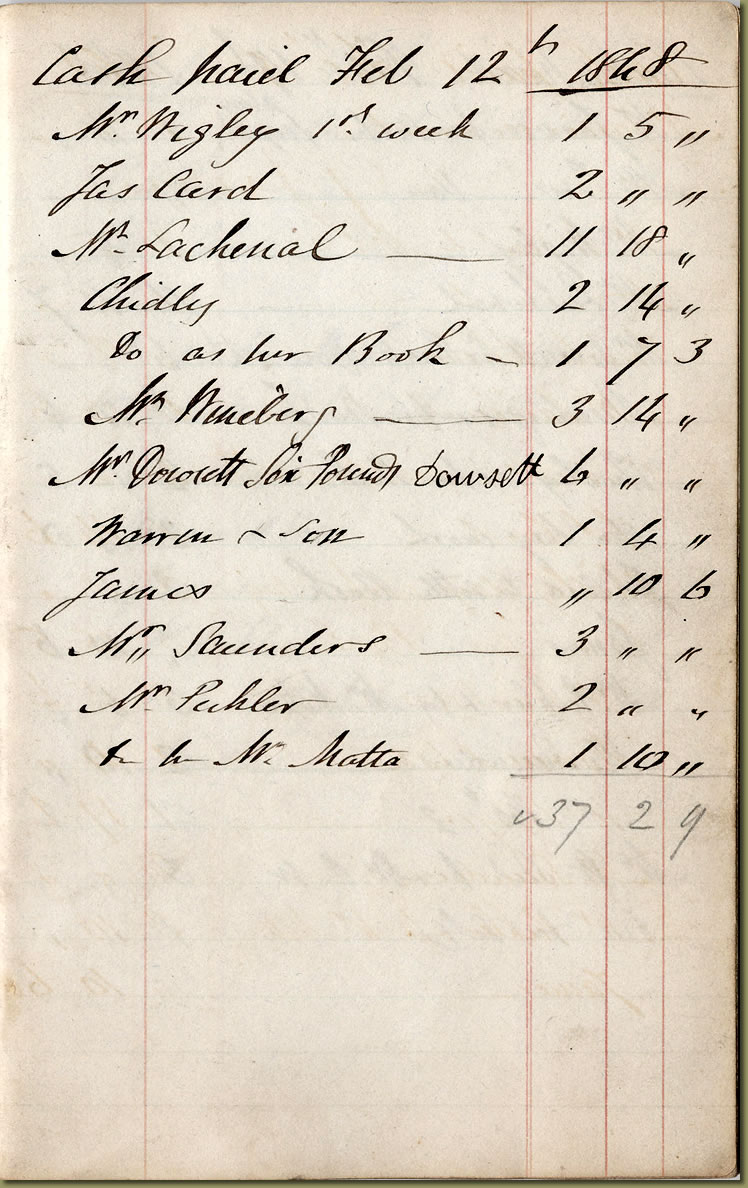 Cash paid Feb 12th 1848
Mr Wigley 1st week 1 5 "
Jas Card 2 " "
Mr Lachenal — 11 18 "
Chidley 2 14 "
Do as per Book - 1 7 3
Mr Wineberg — 3 14 "
Mr Dowsett Six Pounds Dowsett 6 " "
Warren & Son 1 4 "
James " 10 6
Mr Saunders — 3 " "
Mr Pichler 2 " "
Mr Matta 1 10 "
37 2 9